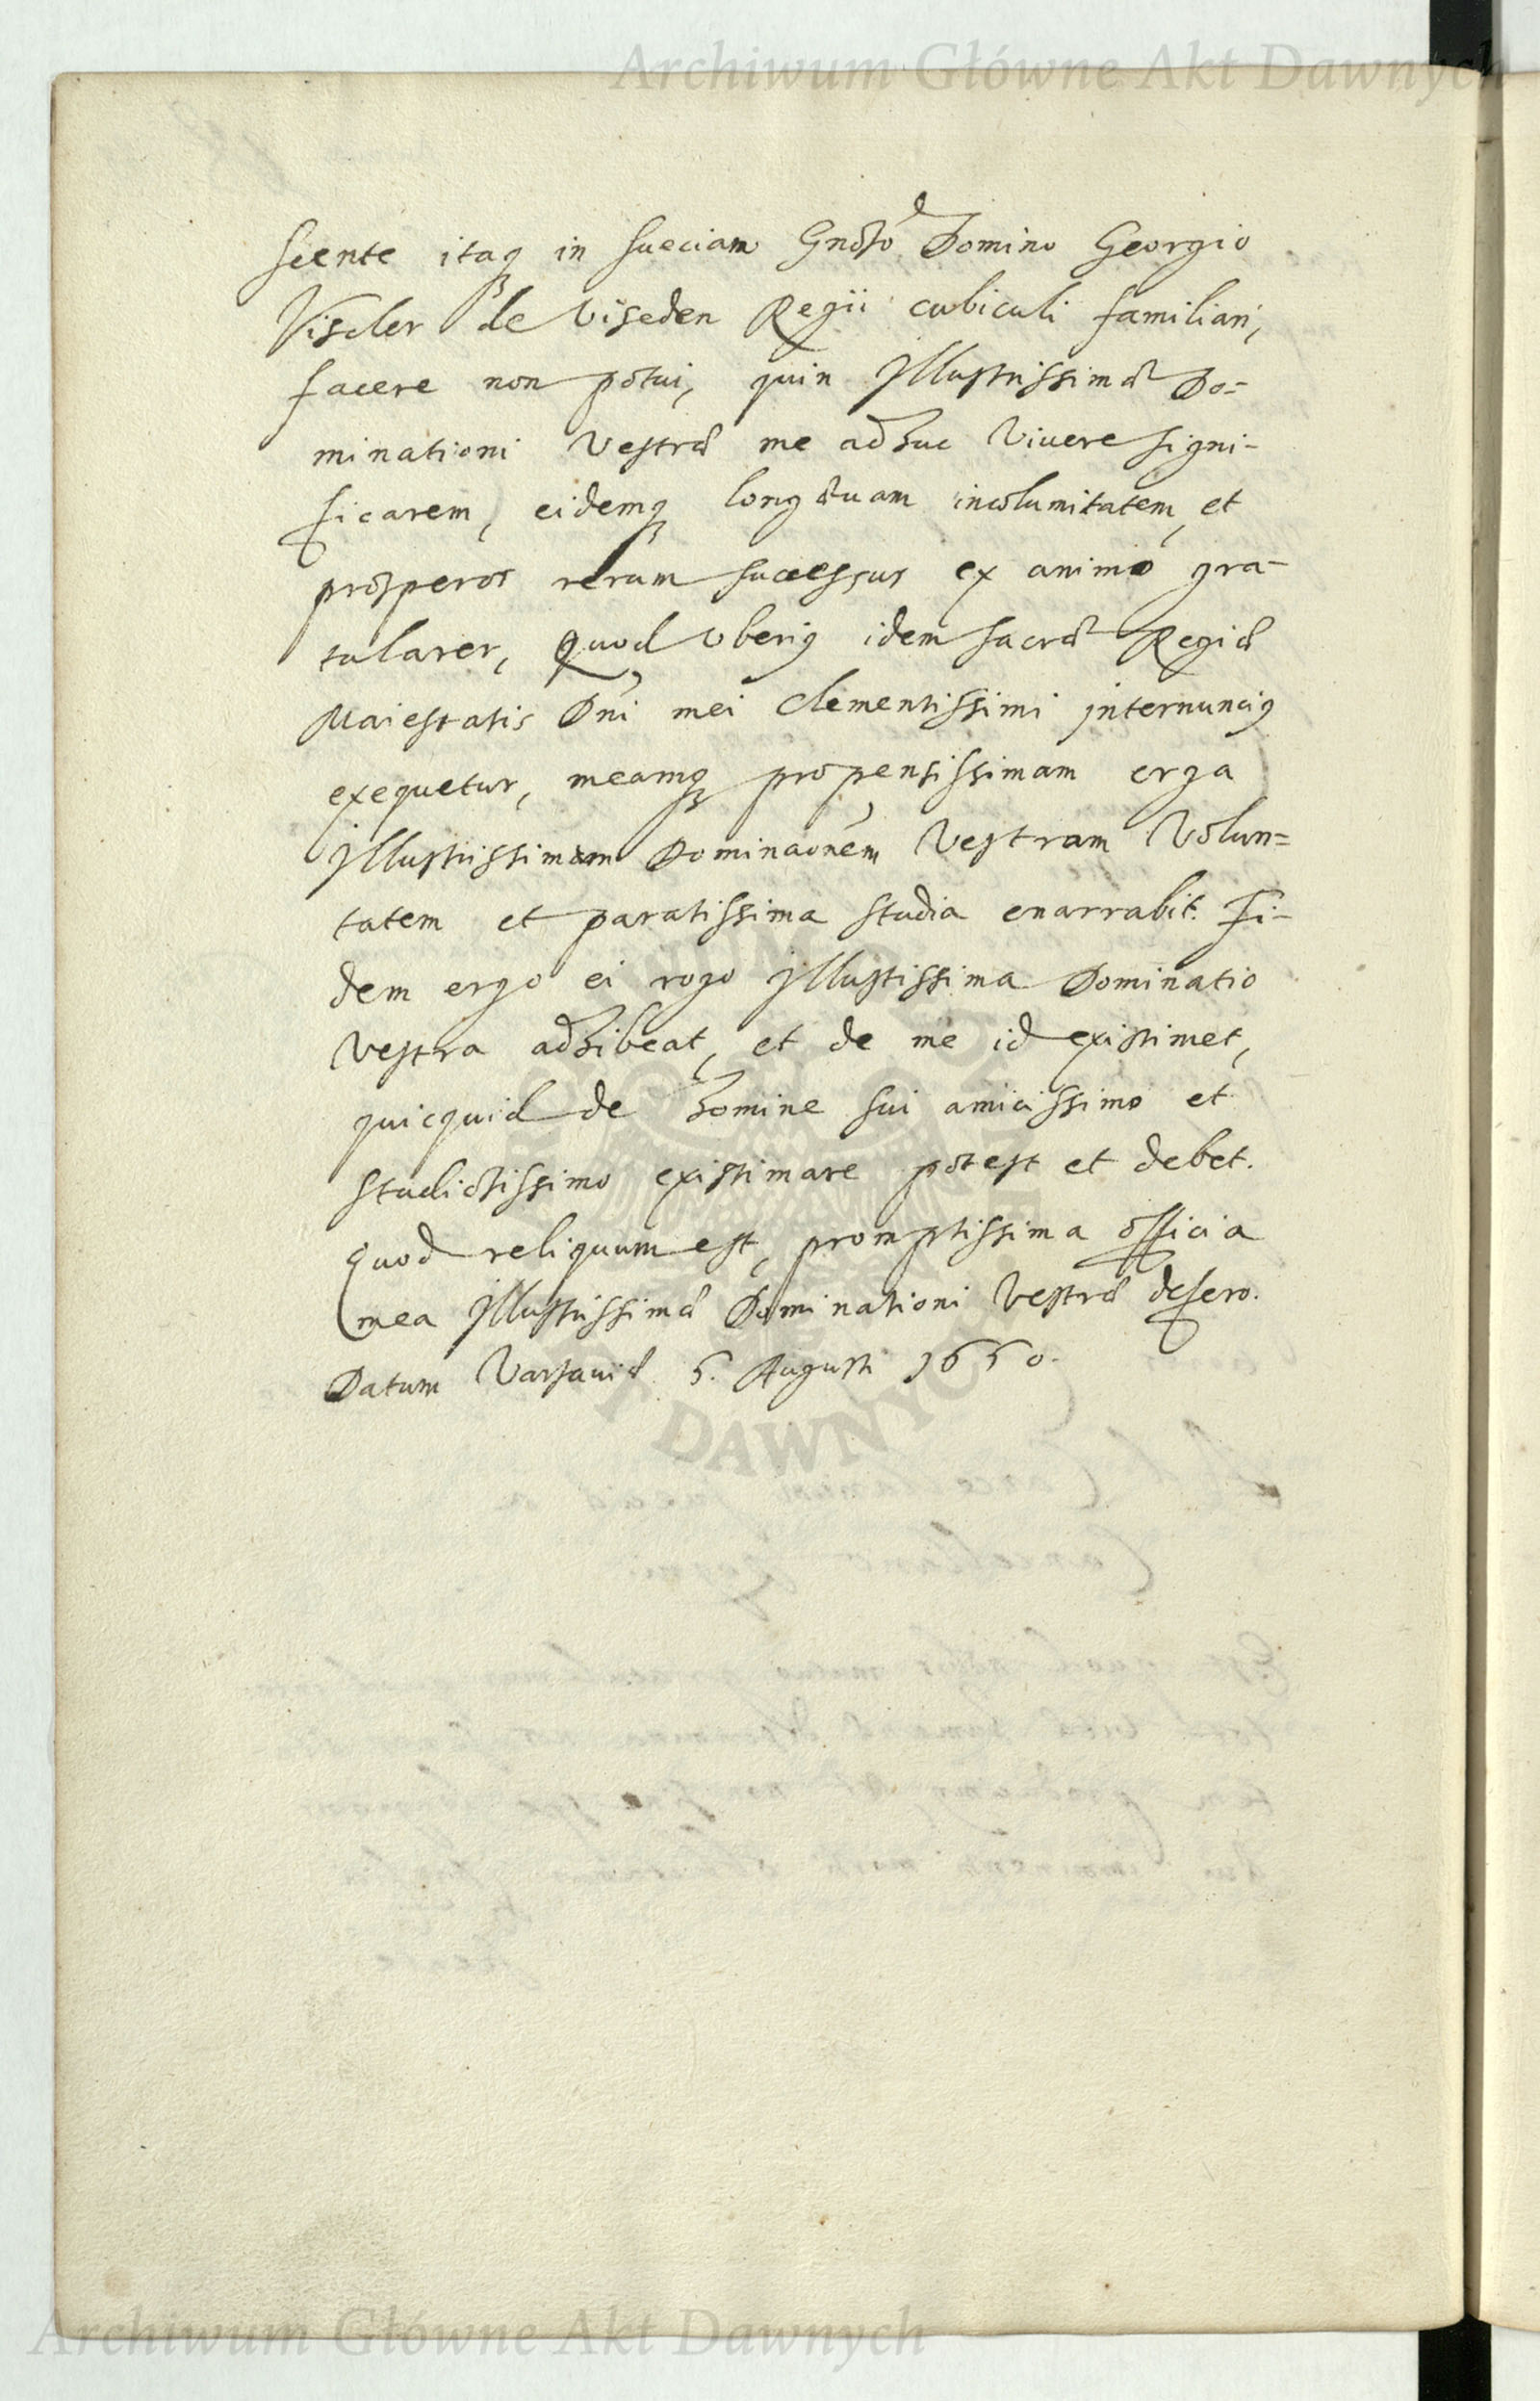 Archiwum Główne Akt Dawnych
scente itaq; in Sueciam Gnoso Domino Georgio
Viscler de Viseden Regii cubiculi familiari,
facere non potui, quin Illustrissimæ Do=
minationi Vestræ me adhuc Vivere signi-
ficarem, eidemq; longæuam incolumitatem, et
prosperos rerum successus ex animo gra-
tularer, Quod Uberiq idem Sacræ Regiæ
Maiestatis Dni mei Clementissimi internunciq
exequetur, meamq; propensissimam erga
Illustrissimam Dominaonem Vestram Volun=
tatem et paratissima studia enarrabit. Fi-
dem ergo ei rogo Illustissima Dominatio
Vestra adhibeat, et de me id existimet,
quicquid de homine sui amicissimo et
studiosissimo existimare potest et debet.
Quod reliquum est, promptissima officia
mea Illustrissimæ Dominationi Vestræ defero.
Datum Varsaviæ 5. Augusti 1650.
DAWNYCH
Archiwum Główne Akt Dawnych